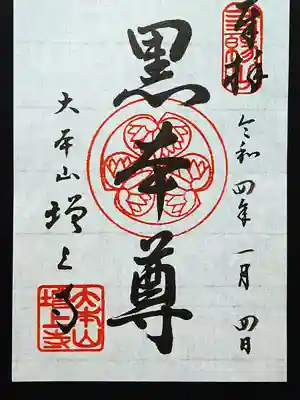 奉拝
令和四年一月四日
黒本尊
大本山増上寺
大本山
増上寺